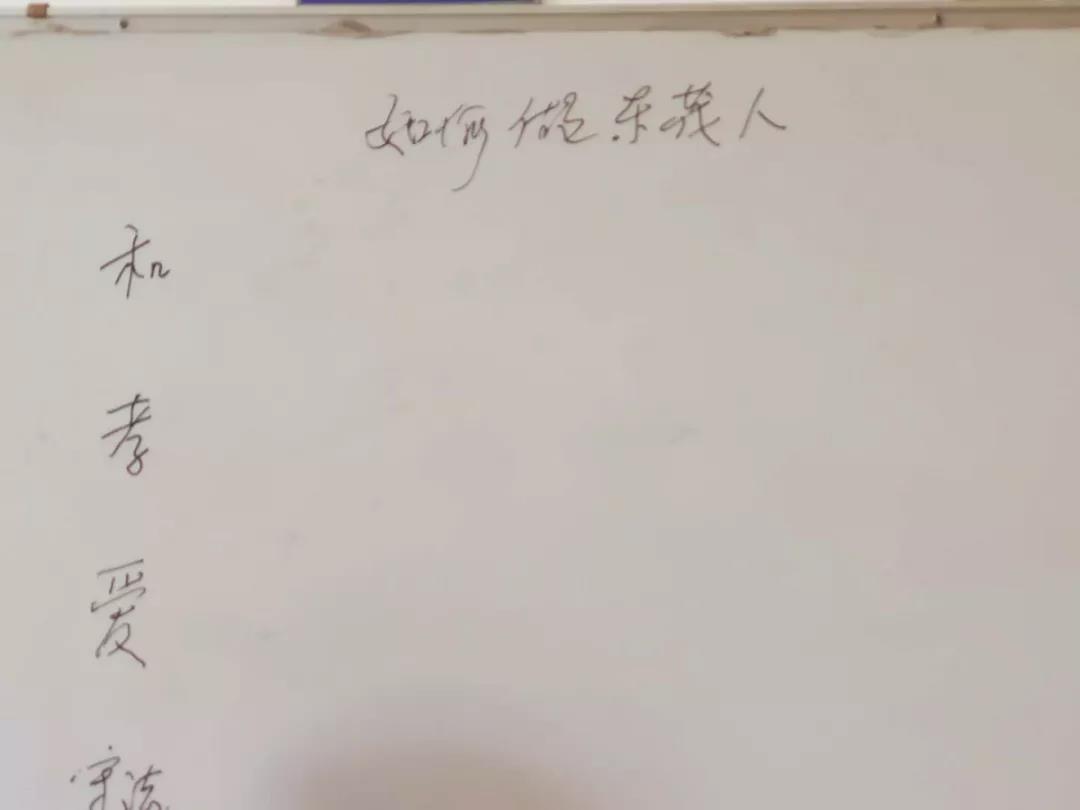 如何做东茂人
和
孝
爱
守法